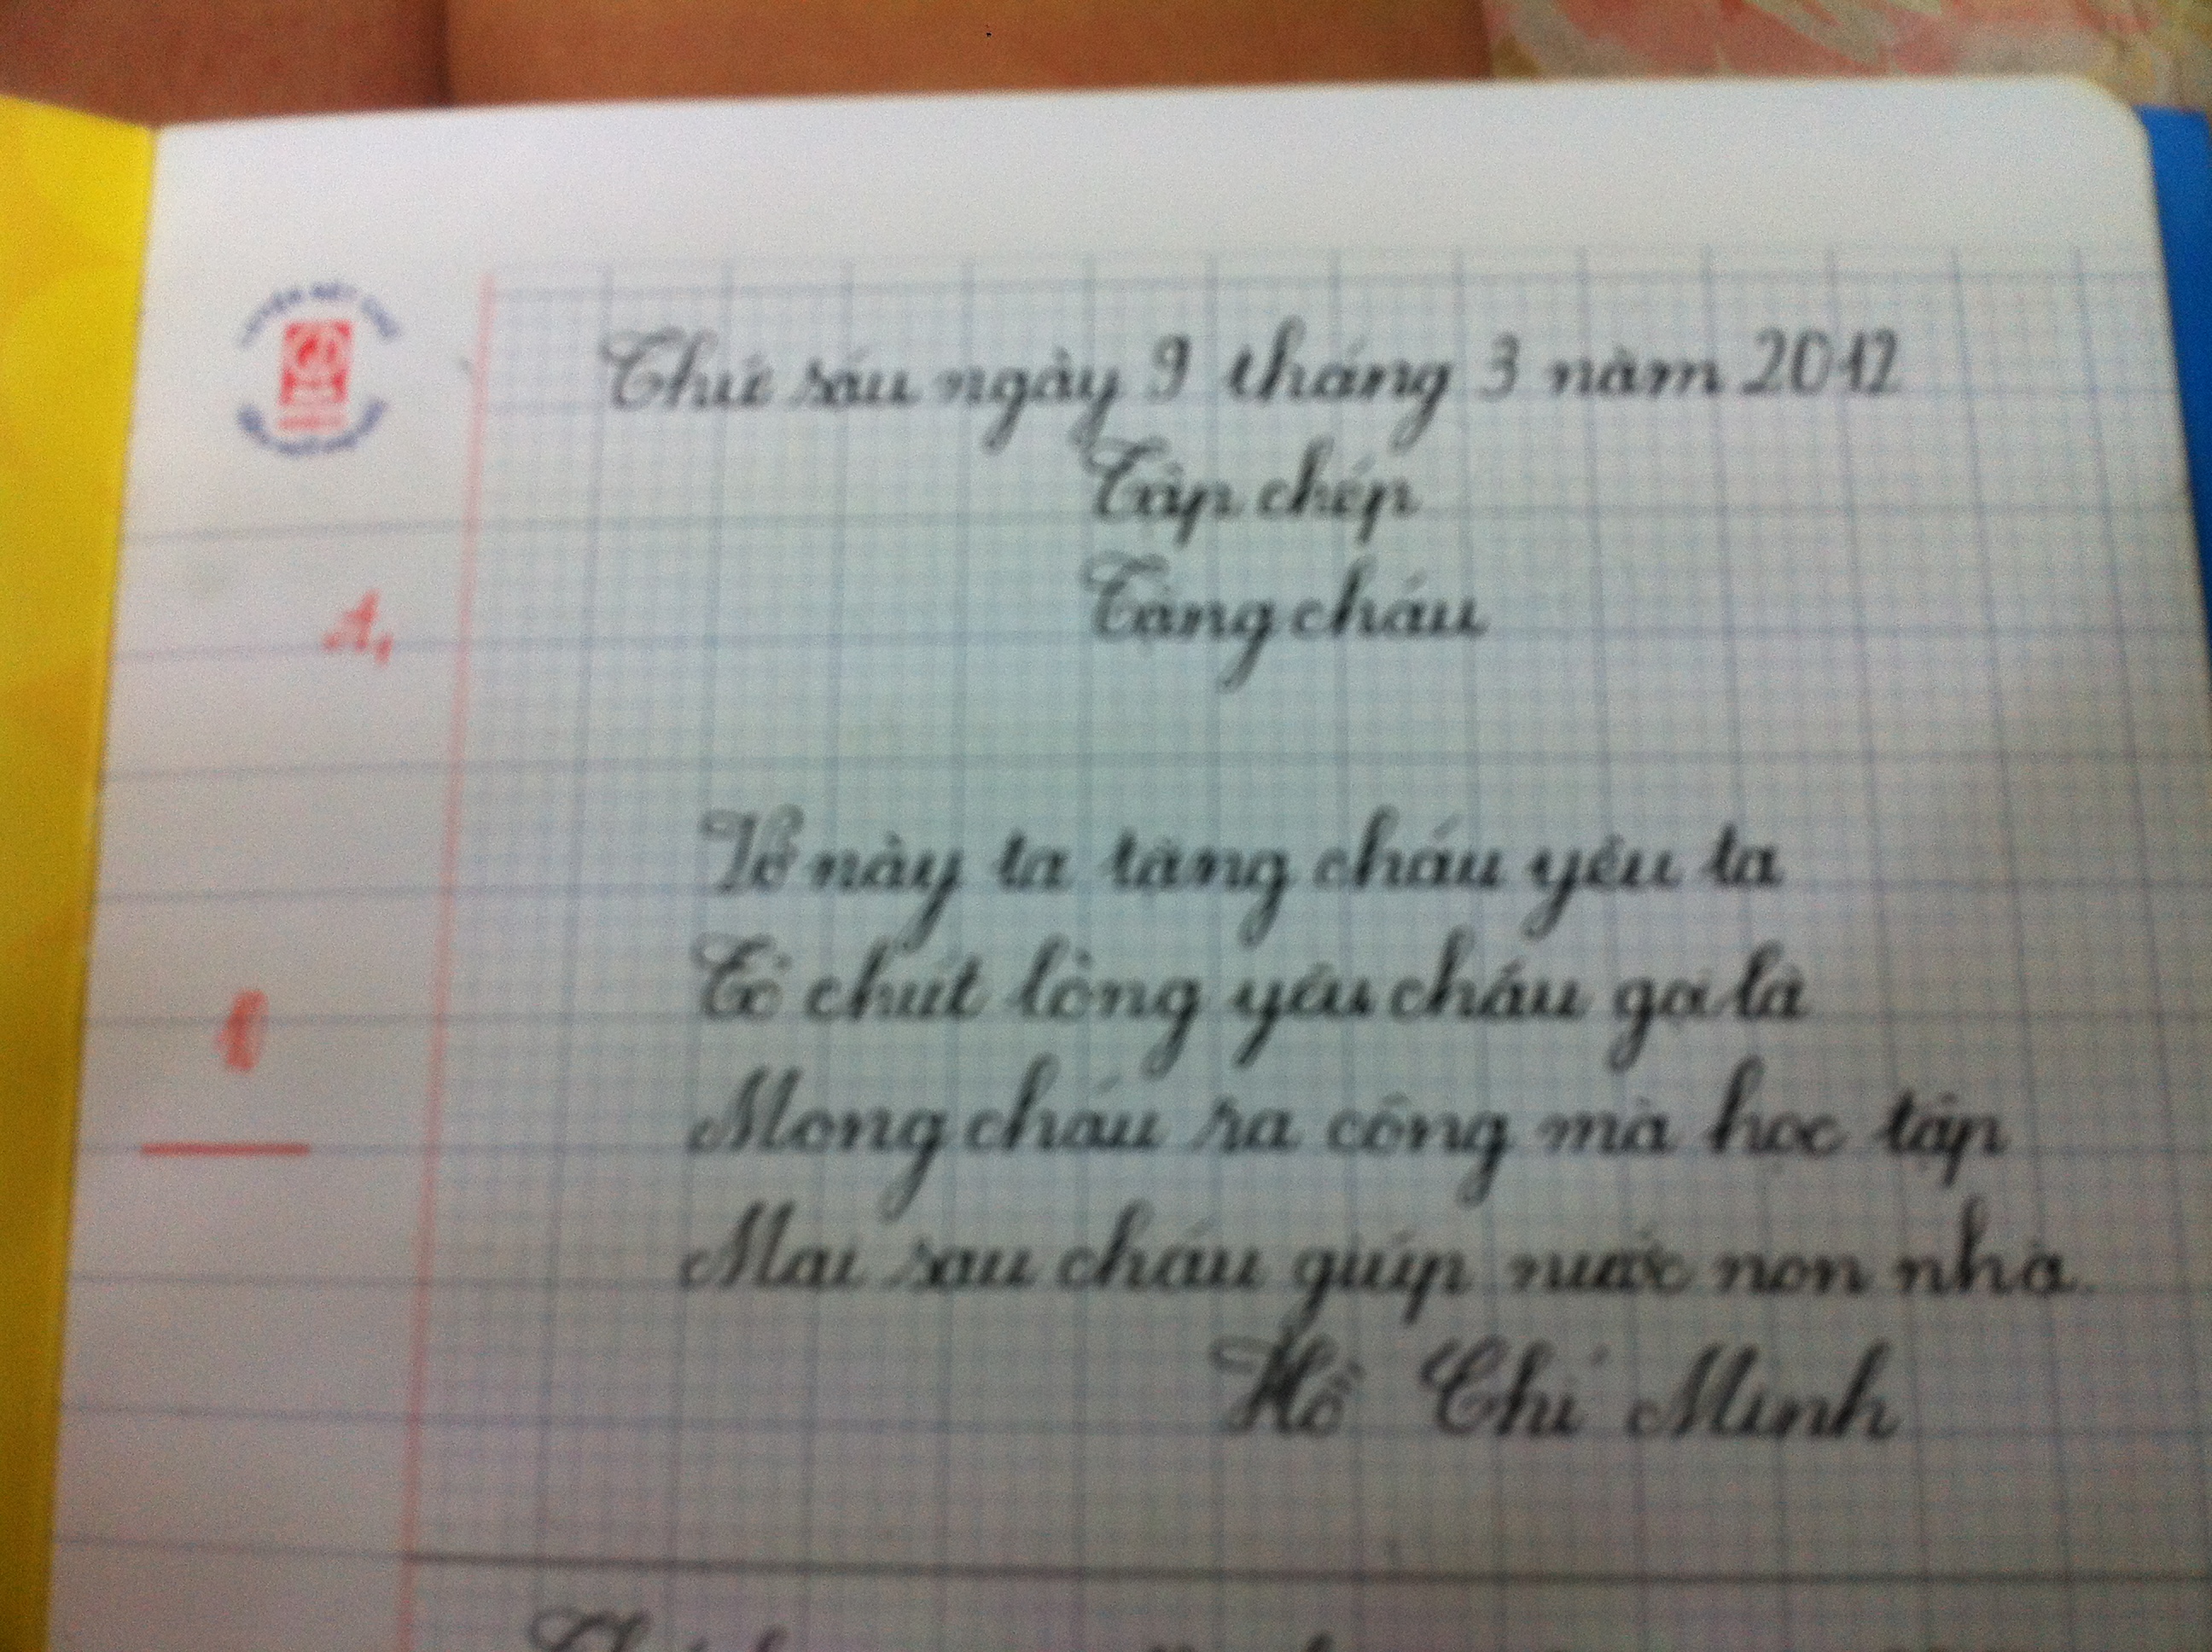 Thứ sáu ngày 9 tháng 3 năm 2012
Tập chép
Tặng cháu
A,
Vở này ta tặng cháu yêu ta
Tỏ chút lòng yêu cháu gọi là
Mong cháu ra công mà học tập
Mai sau cháu giúp nước non nhà.
Hồ Chí Minh